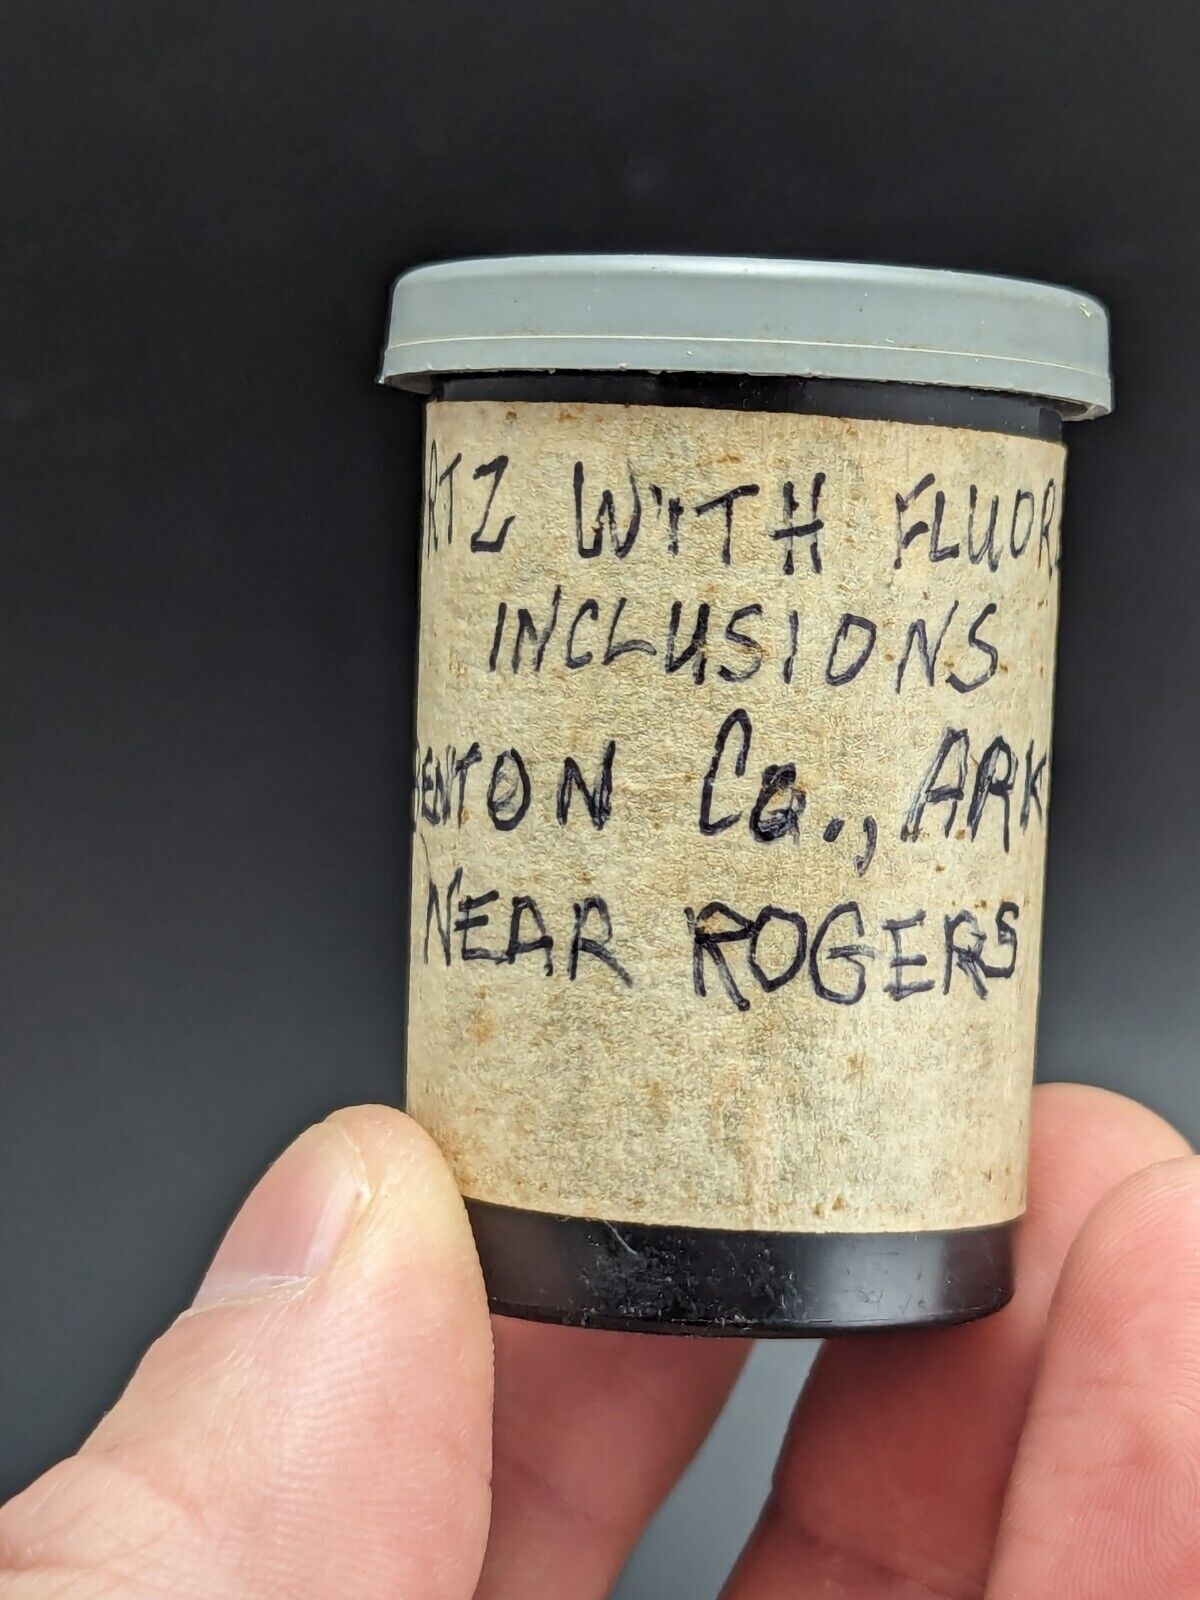 RTZ WITH FLUOR
INCLUSIONS
BENTON Co., ARK
NEAR ROGERS